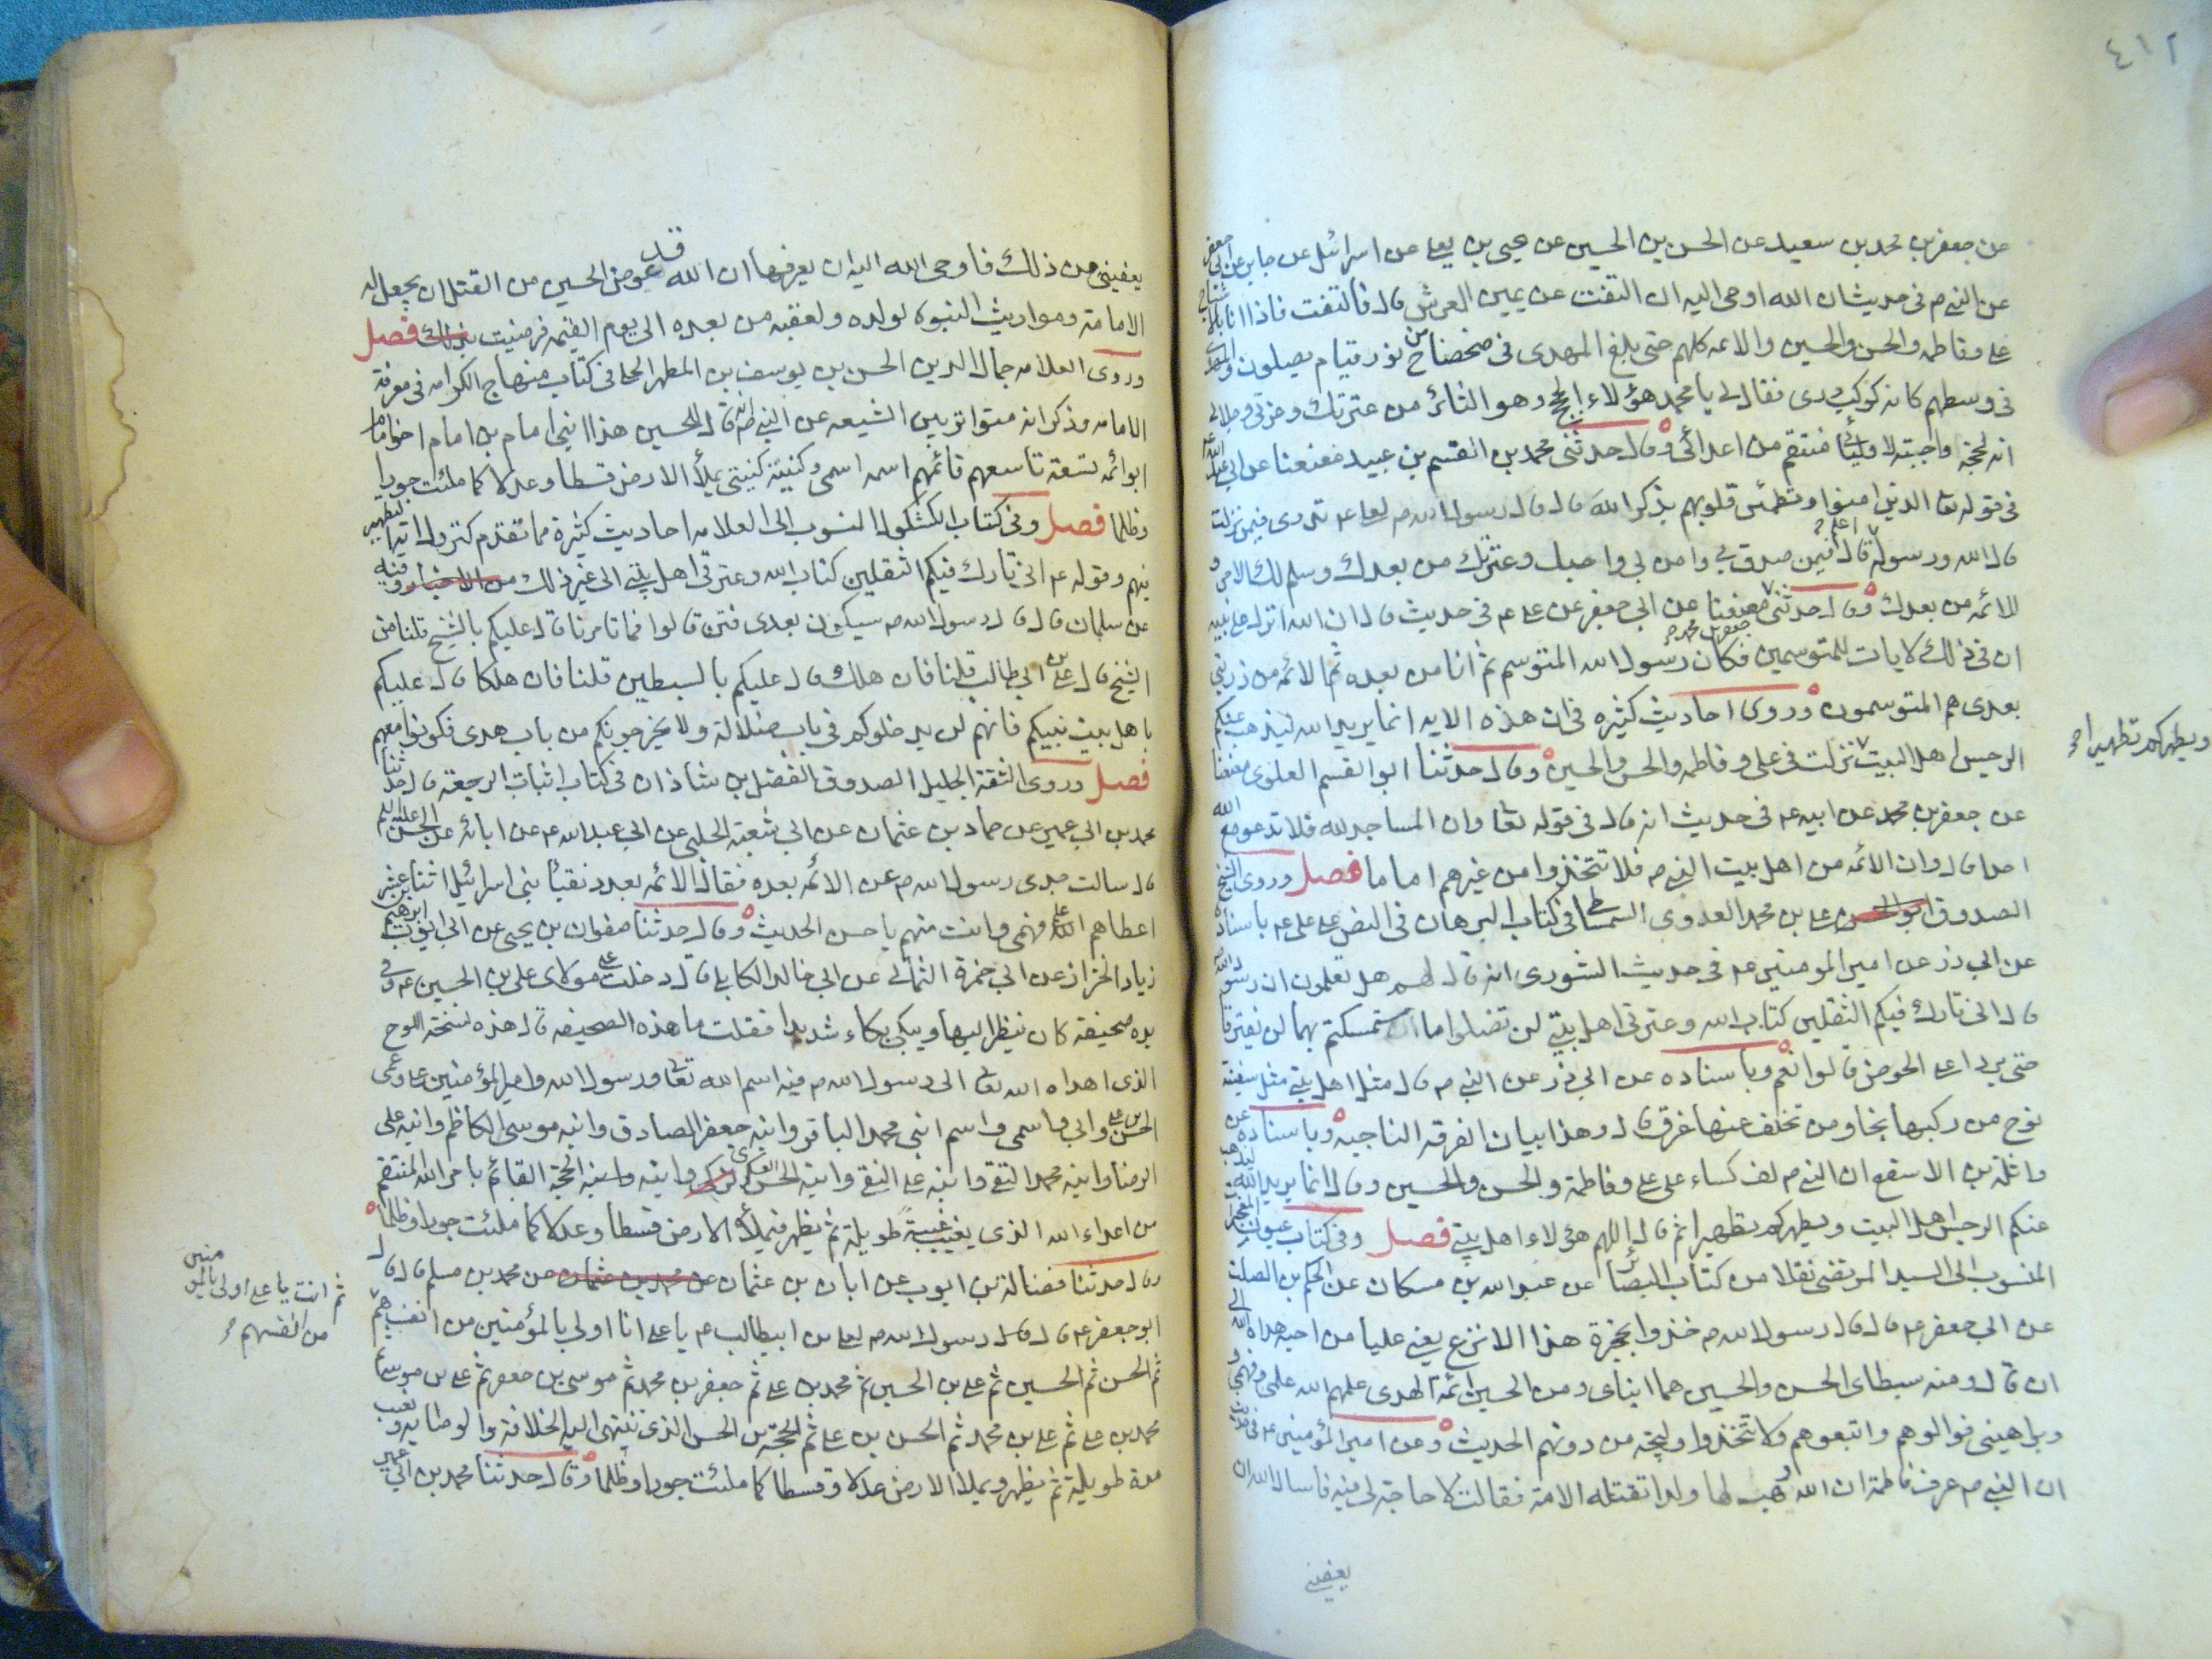 ٤١٢
عن جعفر بن محمد بن سعيد عن الحسن بن الحسين عن يحيى بن يعلى عن اسرائيل عن جابر عن ابي جعفر
عن النبي ص في حديث ان الله اوحى اليه ان التفت عن يمين العرش قال فالتفت فاذا انا باشباح
علي وفاطمه والحسن والحسين والائمه كلهم حتى بلغ المهدى في ضحضاح من نور قيام يصلون والمهدي
في وسطهم كانه كوكب درى فقال لي يا محمد هؤلاء الحجج وهو الثائر من عترتك وعزتي وجلالي
انه لحجة واجبة لاوليائي منتقم من اعدائي وقال حدثني محمد بن القسم بن عبيد معنعنا عن ابي عبد الله
في قوله تعا الذين امنوا وتطمئن قلوبهم بذكر الله قال قال رسول الله ص لعلي ع تدرى فيمن نزلت
قال الله ورسوله اعلم قال فيمن صدق بي وامن بي واحبك وعترتك من بعدك وسلم لك الامر و
للائمه من بعدك وقال حدثني جعفر بن محمد معنعنا عن ابي جعفر عن علي ع في حديث قال ان الله انزل على نبيه
ان في ذلك لايات للمتوسمين فكان رسول الله المتوسم ثم انا من بعده ثم الائمه من ذريتي
بعدى هم المتوسمون وروى احاديث كثيره في ان هذه الايه انما يريد الله ليذهب عنكم
الرجس اهل البيت نزلت في علي وفاطمه والحسن والحسين وقال حدثنا ابو القسم العلوى معنعنا
ويطهركم تطهيرا
عن جعفر بن محمد عن ابيه ع في حديث انه قال في قوله تعا وان المساجد لله فلا تدعو مع الله
احدا قال وان الائمه من اهل بيت النبي ص فلا تتخذوا من غيرهم اماما فصل وروى الشيخ
الصدوق ابو الحسن علي بن محمد العدوى الشمشاطى في كتاب البرهان في النص على علي ع باسناده
عن ابي ذر عن امير المومنين ع في حديث الشورى انه قال لهم هل تعلمون ان رسول الله
قال اني تارك فيكم الثقلين كتاب الله وعترتي اهل بيتي لن تضلوا ما ان تمسكتم بهما لن يفترقا
حتى يردا على الحوض قالوا نعم وباسناده عن ابي ذر عن النبي ص قال مثل اهل بيتي مثل سفينة
نوح من ركبها نجا ومن تخلف عنها غرق قال وهذا بيان الفرقه الناجيه وباسناده عن
واثلة بن الاسقع ان النبي ص لف كساء على علي وفاطمة والحسن والحسين وقال انما يريد الله ليذهب
عنكم الرجس اهل البيت ويطهركم تطهيرا ثم قال اللهم هؤلاء اهل بيتي فصل وفي كتاب عيون المعجزات
المنسوب الى السيد المرتضى نقلا من كتاب البصائر عن عبد الله بن مسكان عن الحكم بن الصلت
عن ابي جعفر ع قال قال رسول الله ص خذوا بحجزة هذا الانزع يعني عليا من احبه هداه الله الى
ان قال ومنه سبطاى الحسن والحسين هما ابناى ومن الحسين ائمة الهدى علمهم الله علمي وفهمي و
وبراهيني فوالوهم واتبعوهم ولا تتخذوا وليجة من دونهم الحديث وعن امير المؤمنين ع في حديث
ان النبي ص عرف فاطمة ان الله وهب لها ولدا تقتله الامة فقالت لا حاجة لي فيه فاسال الله ان
يعفيني
يعفيني من ذلك فاوحى الله اليه ان يعرفها ان الله قد عوض الحسين من القتل ان يجعل له
الامامة ومواريث النبوة لولده ولعقبه من بعده الى يوم القيمه فرضيت بذلك فصل
وروى العلامه جمال الدين الحسن بن يوسف بن المطهر الحلي في كتاب منهاج الكرامه في معرفة
الامامه وذكر انه متواتر بين الشيعه عن النبي ص انه قال للحسين هذا ابني امام بن امام اخو امام
ابو ائمه تسعة تاسعهم قائمهم اسمه اسمى وكنيته كنيتي يملأ الارض قسطا وعدلا كما ملئت جورا
وظلما فصل وفي كتاب الكشكول المنسوب الى العلامه احاديث كثيرة مما تقدم كنزول اية التطهير
فيهم وقوله ع اني تارك فيكم الثقلين كتاب الله وعترتي اهل بيتي الى غير ذلك من الاخبار وفيه
عن سلمان قال قال رسول الله ص سيكون بعدى فتن قالوا فما تامرنا قال عليكم بالشيخ قلنا من
الشيخ قال علي بن ابي طالب قلنا فان هلك قال عليكم بالسبطين قلنا فان هلكا قال عليكم
باهل بيت نبيكم فانهم لن يدخلوكم في باب ضلالة ولا يخرجونكم من باب هدى فكونوا معهم
فصل وروى الثقة الجليل الصدوق الفضل بن شاذان في كتاب اثبات الرجعة قال حدثنا
محمد بن ابي عمير عن حماد بن عثمان عن ابي شعبة الحلبي عن ابي عبد الله ع عن ابائه عن الحسن عليه السلم
قال سالت جدى رسول الله ص عن الائمه بعده فقال الائمه بعدد نقباء بني اسرائيل اثنا عشر
اعطاهم الله علمي وفهمي وانت منهم يا حسن الحديث وقال حدثنا صفوان بن يحيى عن ابي ايوب ابرهيم بن
زياد الخزاز عن ابي حمزة الثمالي عن ابي خالد الكابلي قال دخلت على مولاى علي بن الحسين ع وفي
يده صحيفة كان ينظر اليها ويبكى بكاء شديدا فقلت ما هذه الصحيفه قال هذه نسخة اللوح
الذى اهداه الله تعا الى رسول الله ص فيه اسم الله تعا ورسول الله وامير المؤمنين علي وعمى
الحسن بن علي وابي واسمى واسم ابني محمد الباقر وابنه جعفر الصادق وابنه موسى الكاظم وابنه علي
الرضا وابنه محمد التقي وابنه علي النقي وابنه الحسن العسكرى وابنه الحجة القائم بامر الله المنتقم
من اعداء الله الذى يغيب غيبة طويلة ثم يظهر فيملأ الارض قسطا وعدلا كما ملئت جورا وظلما
وقال حدثنا فضالة بن ايوب عن ابان بن عثمان عن محمد بن عثمان عن محمد بن مسلم قال قال
ابو جعفر ع قال قال رسول الله ص لعلي بن ابيطالب ع يا علي انا اولى بالمؤمنين من انفسهم
ثم انت يا علي اولى بالمومنين
من انفسهم
ثم الحسن ثم الحسين ثم علي بن الحسين ثم محمد بن علي ثم جعفر بن محمد ثم موسى بن جعفر ثم علي بن موسى ثم
محمد بن علي ثم علي بن محمد ثم الحسن بن علي ثم الحجة بن الحسن الذى تنتهى اليه الخلافة والوصايه ويغيب
مدة طويلة ثم يظهر ويملأ الارض عدلا وقسطا كما ملئت جورا وظلما وقال حدثنا محمد بن ابي عمير